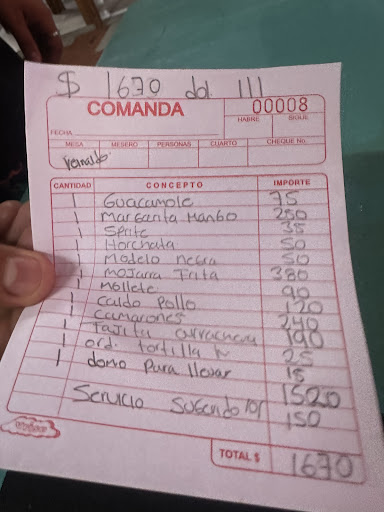 $ 1670 dol 111
COMANDA
00008
HABRE SIGUE
FECHA
MESA MESERO PERSONAS CUARTO CHEQUE No.
CANTIDAD CONCEPTO IMPORTE
1 Guacamole 75
1 Margarita Mango 250
1 Sprite 35
1 Horchata 50
1 Modelo negra 50
1 mojarra Frita 380
1 mollete 90
1 Caldo Pollo 120
1 Camarones 240
1 Fajita arrachera 190
1 ord. tortilla 25
1 domo para llevar 15
1520
Servicio Sugerido 10% 150
TOTAL $ 1670